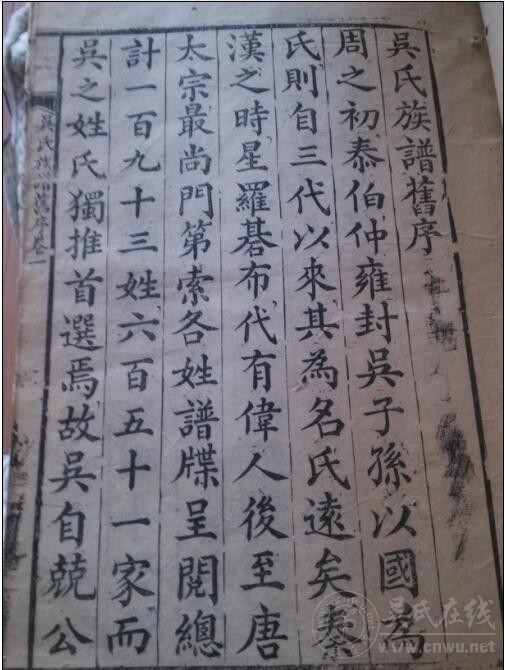 吳氏族譜舊序
周之初泰伯仲雍封吳子孫以國為
氏則自三代以來其為名氏遠矣秦
漢之時星羅碁布代有偉人後至唐
太宗最尚門第索各姓譜牒呈閱總
計一百九十三姓六百五十一家而
吳之姓氏獨推首選焉故吳自兢公
吳氏族譜舊序卷一
吴氏在线
www.cnwu.net